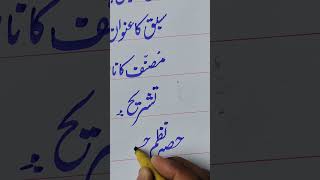 سبق کا عنوان
مُصنّف کا نا
تشریح
حصہ نظم